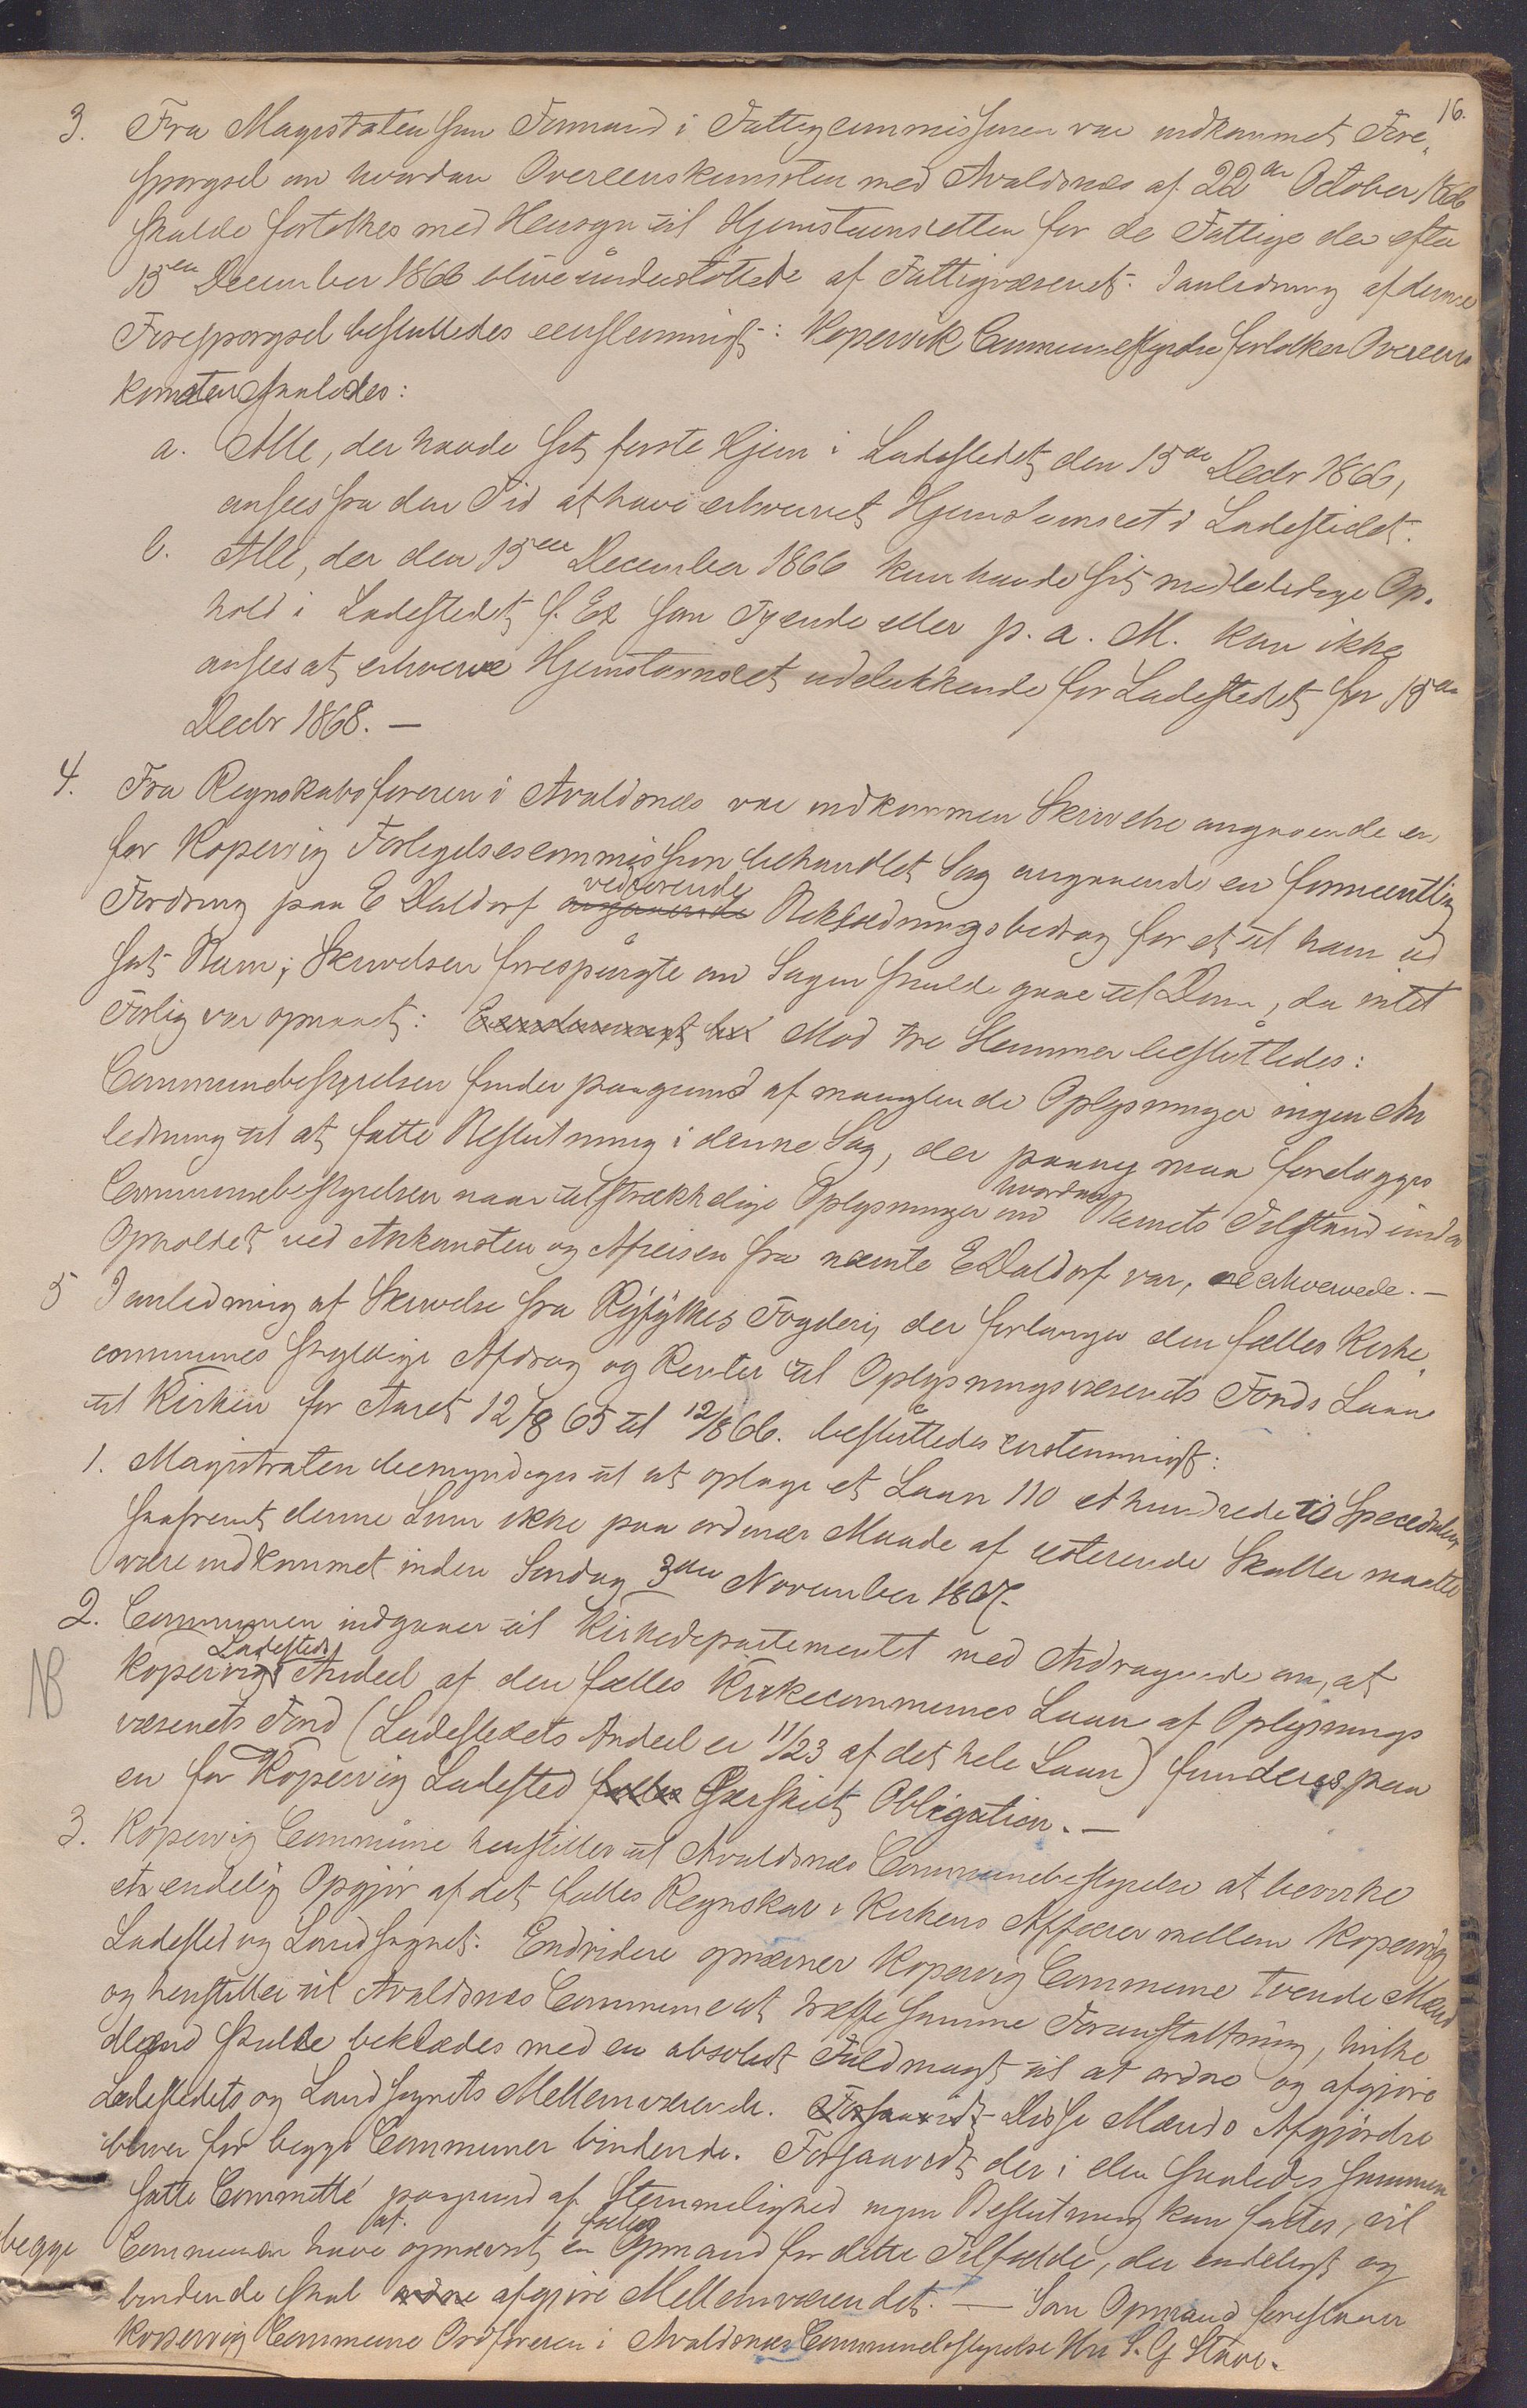 16.
3. Fra Magistraten som Formand i Fattigcommissionen var indkommet Fore-
spørgsel om hvordan Overeenskomsten med Avaldsnes af 22de October 1866
skulde fortolkes med Hensyn til Hjemstavnsretten for de Fattige der efter
15de December 1866 blive understøttede af Fattigvæsenet. I anledning af denne
Forespørgsel besluttedes eenstemmigt: Kopervik Communestyrelse fortolker Overeens
komsten saaledes:
a. Alle, der havde sit første Hjem i Ladestedet den 15de Decbr 1866,
ansees fra den Tid at have erhvervet Hjemstavnsret i Ladestedet.
b. Alle, der den 15de December 1866 kun havde sit midlertidige Op-
hold i Ladestedet f. Ex som Tyende eller p. a. M. kan ikke
ansees at erhverve Hjemstavnsret udelukkende for Ladestedet før 15de
Decbr 1868. —
4. Fra Regnskabsføreren i Avaldsnes var indkommen Skrivelse angaaende en
for Kopervig Forligelsescommission behandlet Sag angaaende en formeentlig
Fordring paa E Daldorf angaaende vedkorende Beklædningsbidrag for et til ham ud
sat Barn; Skrivelsen forespurgte om Sagen skulde gaae til Dom, da intet
Forlig var opnaaet: Mod tre Stemmer besluttedes:
Communebestyrelsen finder paagrund af manglende Oplysninger ingen An
ledning til at fatte Beslutning i denne Sag, der paany maa forelægges
Communebestyrelsen naar tilstrækkelige Oplysninger om hvordan Barnets Tilstand under
Opholdet ved Ankomsten og Afreisen fra nævnte E Daldorf var, er erhvervede. —
5 I anledning af Skrivelse fra Ryfylkes Fogderi, der forlanger den fælles Kirke
communes skyldige Afdrag og Renter til Oplysningsvæsenets Fonds Laan
til Kirken for Aaret 12/8 65 til 12/8 66. besluttedes enstemmigt:
1. Magistraten bemyndiges til at optage et Laan 110 et hundrede ti Speciedaler
saafremt denne Sum ikke paa ordinær Maade af resterende Skatter maatte
være indkommet inden Søndag 3die November 1867.
2. Communen indgaaer til Kirkedepartementet med Andragende om, at
NB Kopervigs Ladesteds Andeel af den fælles Kirkecommunes Laan af Oplysnings
væsenets Fond (Ladestedets Andeel er 11/23 af det hele Laan) funderes paa
en for Kopervig Ladested fælles særskilt Obligation. —
3. Kopervig Commune henstiller til Avaldsnes Communebestyrelse at bevirke
et endelig Opgjør af det fælles Regnskab i Kirkens Affærer mellem Kopervig
Ladested og Landsognet. Endvidere opnævner Kopervig Commune tvende Mænd
og henstiller til Avaldsnes Commune at træffe samme Foranstaltning, hvilke
Mænd skulde beklædes med en absolut Fuldmagt til at ordne og afgjøre
Ladestedets og Landsognets Mellemværende. Forsaavidt Disse Mænds Afgjørelse
bliver for begge Communer bindende. Forsaavidt der i den saaledes sammen
satte Committé paagrund af Stemmelighed ingen Beslutning kan fattes, vil
begge Communer have at opnævnt en fælles Opmand for dette Tilfælde, der endeligt og
bindende skal ordne afgjøre Mellemværendet. — Som Opmand foreslaaer
Kopervig Commune Ordføreren i Avaldsnes Communebestyrelse Hr. S. G. Stave.